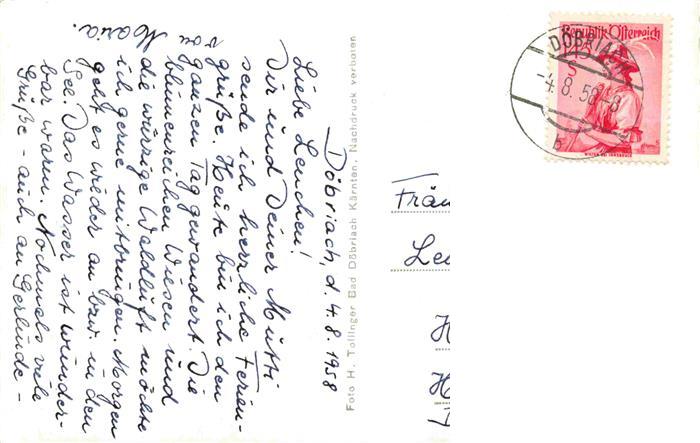 Döbriach, d. 4.8.1958
Liebe Lenchen!
Dir und Deiner Mutti
sende ich herzliche Ferien-
grüße. Heute bin ich den
ganzen Tag gewandert. Die
blumenreichen Wiesen und
die würzige Waldluft möchte
ich gerne mitbringen. Morgen
geht es wieder an bzw. in den
See. Das Wasser ist wunder-
bar warm. Nochmals viele
Grüße - auch an Gerlinde -
von
Maria.
Foto H. Tollinger Bad Döbriach Kärnten, Nachdruck verboten
Republik Österreich
DÖBRIACH
-4.8.58-8
b
Fräu
Le
H
H